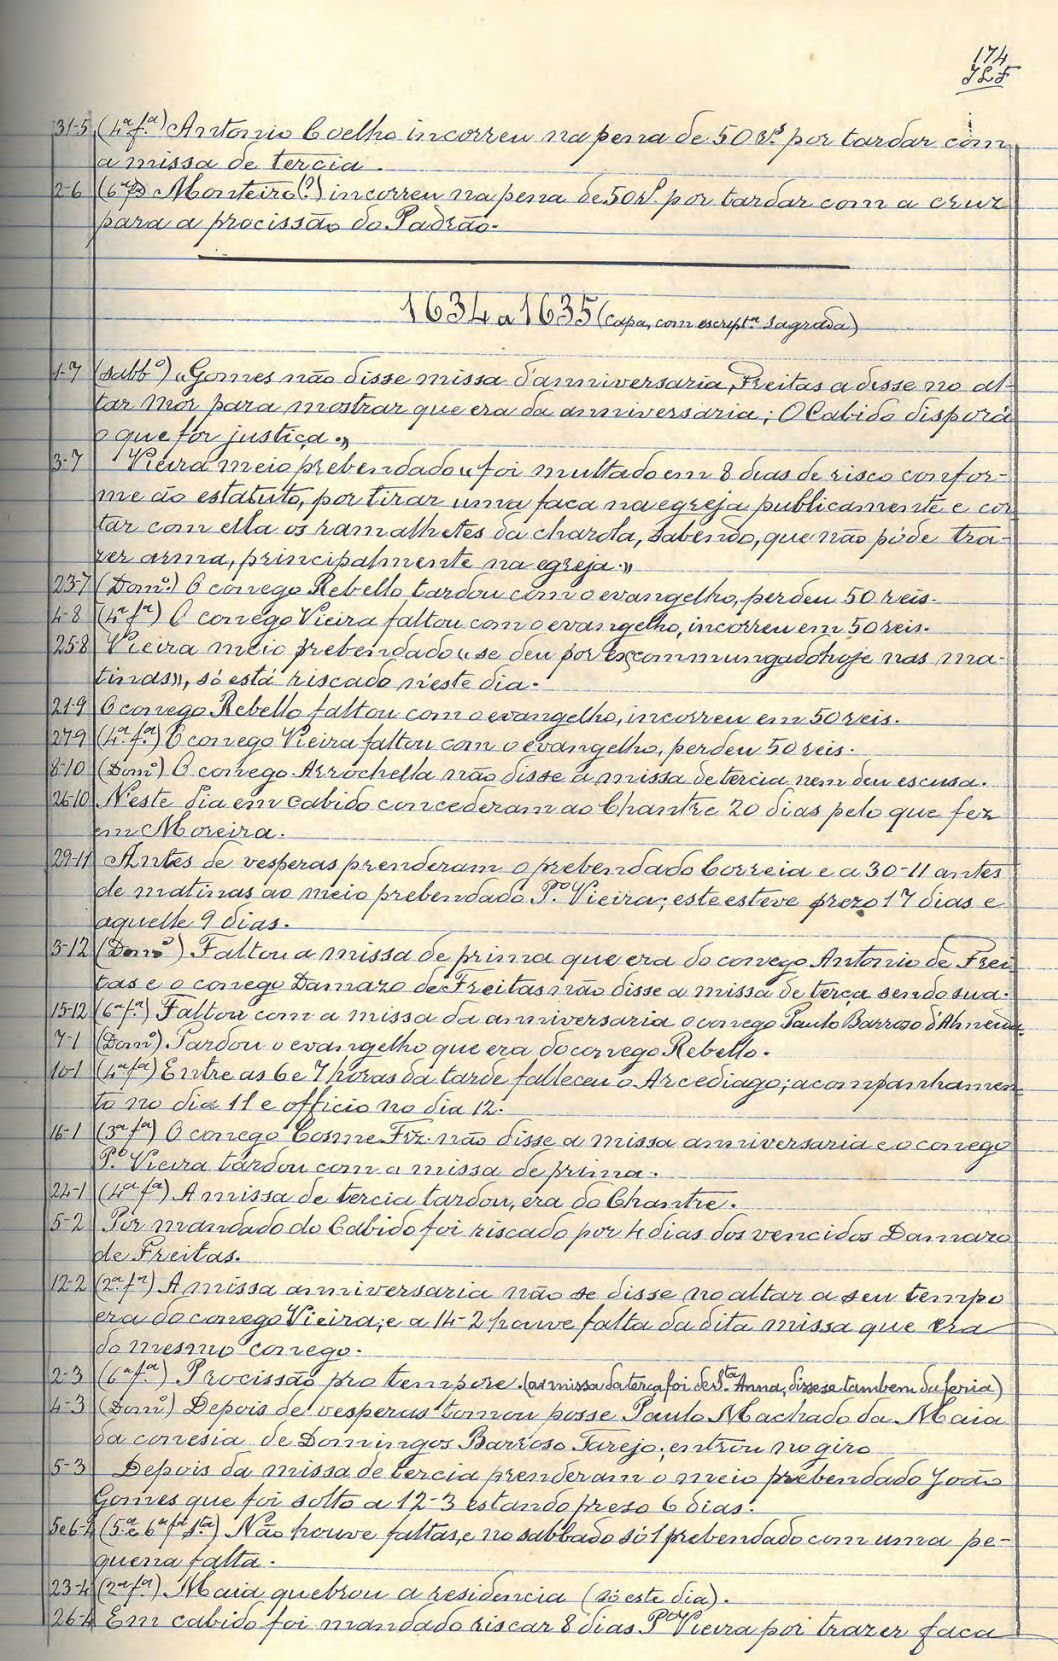 174
31-5 (4ª fª) Antonio Coelho incorreu na pena de 50 rs. por tardar com
a missa de tercia.
2-6 (6ª fª) Monteiro(?) incorreu na pena de 50 rs. por tardar com a cruz
para a procissão do Padrão.
1634 a 1635 (capa, com escriptª sagrada)
1-7 (sabbº) «Gomes não disse missa d'anniversaria, Freitas a disse no al-
tar mór para mostrar que era da anniversaria; O Cabido disporá
o que for justiça.»
3-7 Vieira meio prebendado «foi multado em 8 dias de risco confor-
me ao estatuto, por tirar uma faca na egreja publicamente e cor
tar com ella os ramalhetes da charola, sabendo, que não póde tra-
zer arma, principalmente na egreja.»
23-7 (Domº.) O conego Rebello tardou com o evangelho, perdeu 50 reis.
4-8 (4ª fª) O conego Vieira faltou com o evangelho, incorreu em 50 reis.
25-8 Vieira meio prebendado «se deu por excommungado hoje nas ma-
tinas», só está riscado n'este dia.
21-9 O conego Rebello faltou com o evangelho, incorreu em 50 reis.
27-9 (4ª. fª.) O conego Vieira faltou com o evangelho, perdeu 50 reis.
8-10 (Domº) O conego Arrochella não disse a missa de tercia nem deu escusa.
26-10 N'este dia em cabido concederam ao Chantre 20 dias pelo que fez
em Moreira.
29-11 Antes de vesperas prenderam o prebendado Correia e a 30-11 antes
de matinas ao meio prebendado P.º Vieira; este esteve prezo 17 dias e
aquelle 9 dias.
3-12 (Domº) Faltou a missa de prima que era do conego Antonio de Frei
tas e o conego Damazo de Freitas não disse a missa de terça sendo sua.
15-12 (6ª fª) Faltou com a missa da anniversaria o conego Paulo Barrozo d'Almeida.
7-1 (Domº). Tardou o evangelho que era do conego Rebello.
10-1 (4ª fª) Entre as 6 e 7 horas da tarde falleceu o Arcediago; acompanhamen
to no dia 11 e officio no dia 12.
16-1 (3ª fª) O conego Cosme Frz. não disse a missa anniversaria e o conego
P.º Vieira tardou com a missa de prima.
24-1 (4ª fª) A missa de tercia tardou, era do Chantre.
5-2 Por mandado do Cabido foi riscado por 4 dias dos vencidos Damazo
de Freitas.
12-2 (2ª fª) A missa anniversaria não se disse no altar a seu tempo
era do conego Vieira; e a 14-2 houve falta da dita missa que era
do mesmo conego.
2-3 (6ª fª) Procissão pro tempore. (a missa da terça foi de Stª Anna, disse se tambem da feria)
4-3 (Domº) Depois de vesperas tomou posse Paulo Machado da Maia
da conesia de Domingos Barroso Tarejo; entrou no giro
5-3 Depois da missa de tercia prenderam o meio prebendado João
Gomes que foi solto a 12-3 estando preso 6 dias.
5 e 6-4 (5ª e 6ª fª stª) Não houve faltas, e no sabbado só 1 prebendado com uma pe-
quena falta.
23-4 (2ª fª). Maia quebrou a residencia (só este dia).
26-4 Em cabido foi mandado riscar 8 dias Pº Vieira por trazer faca